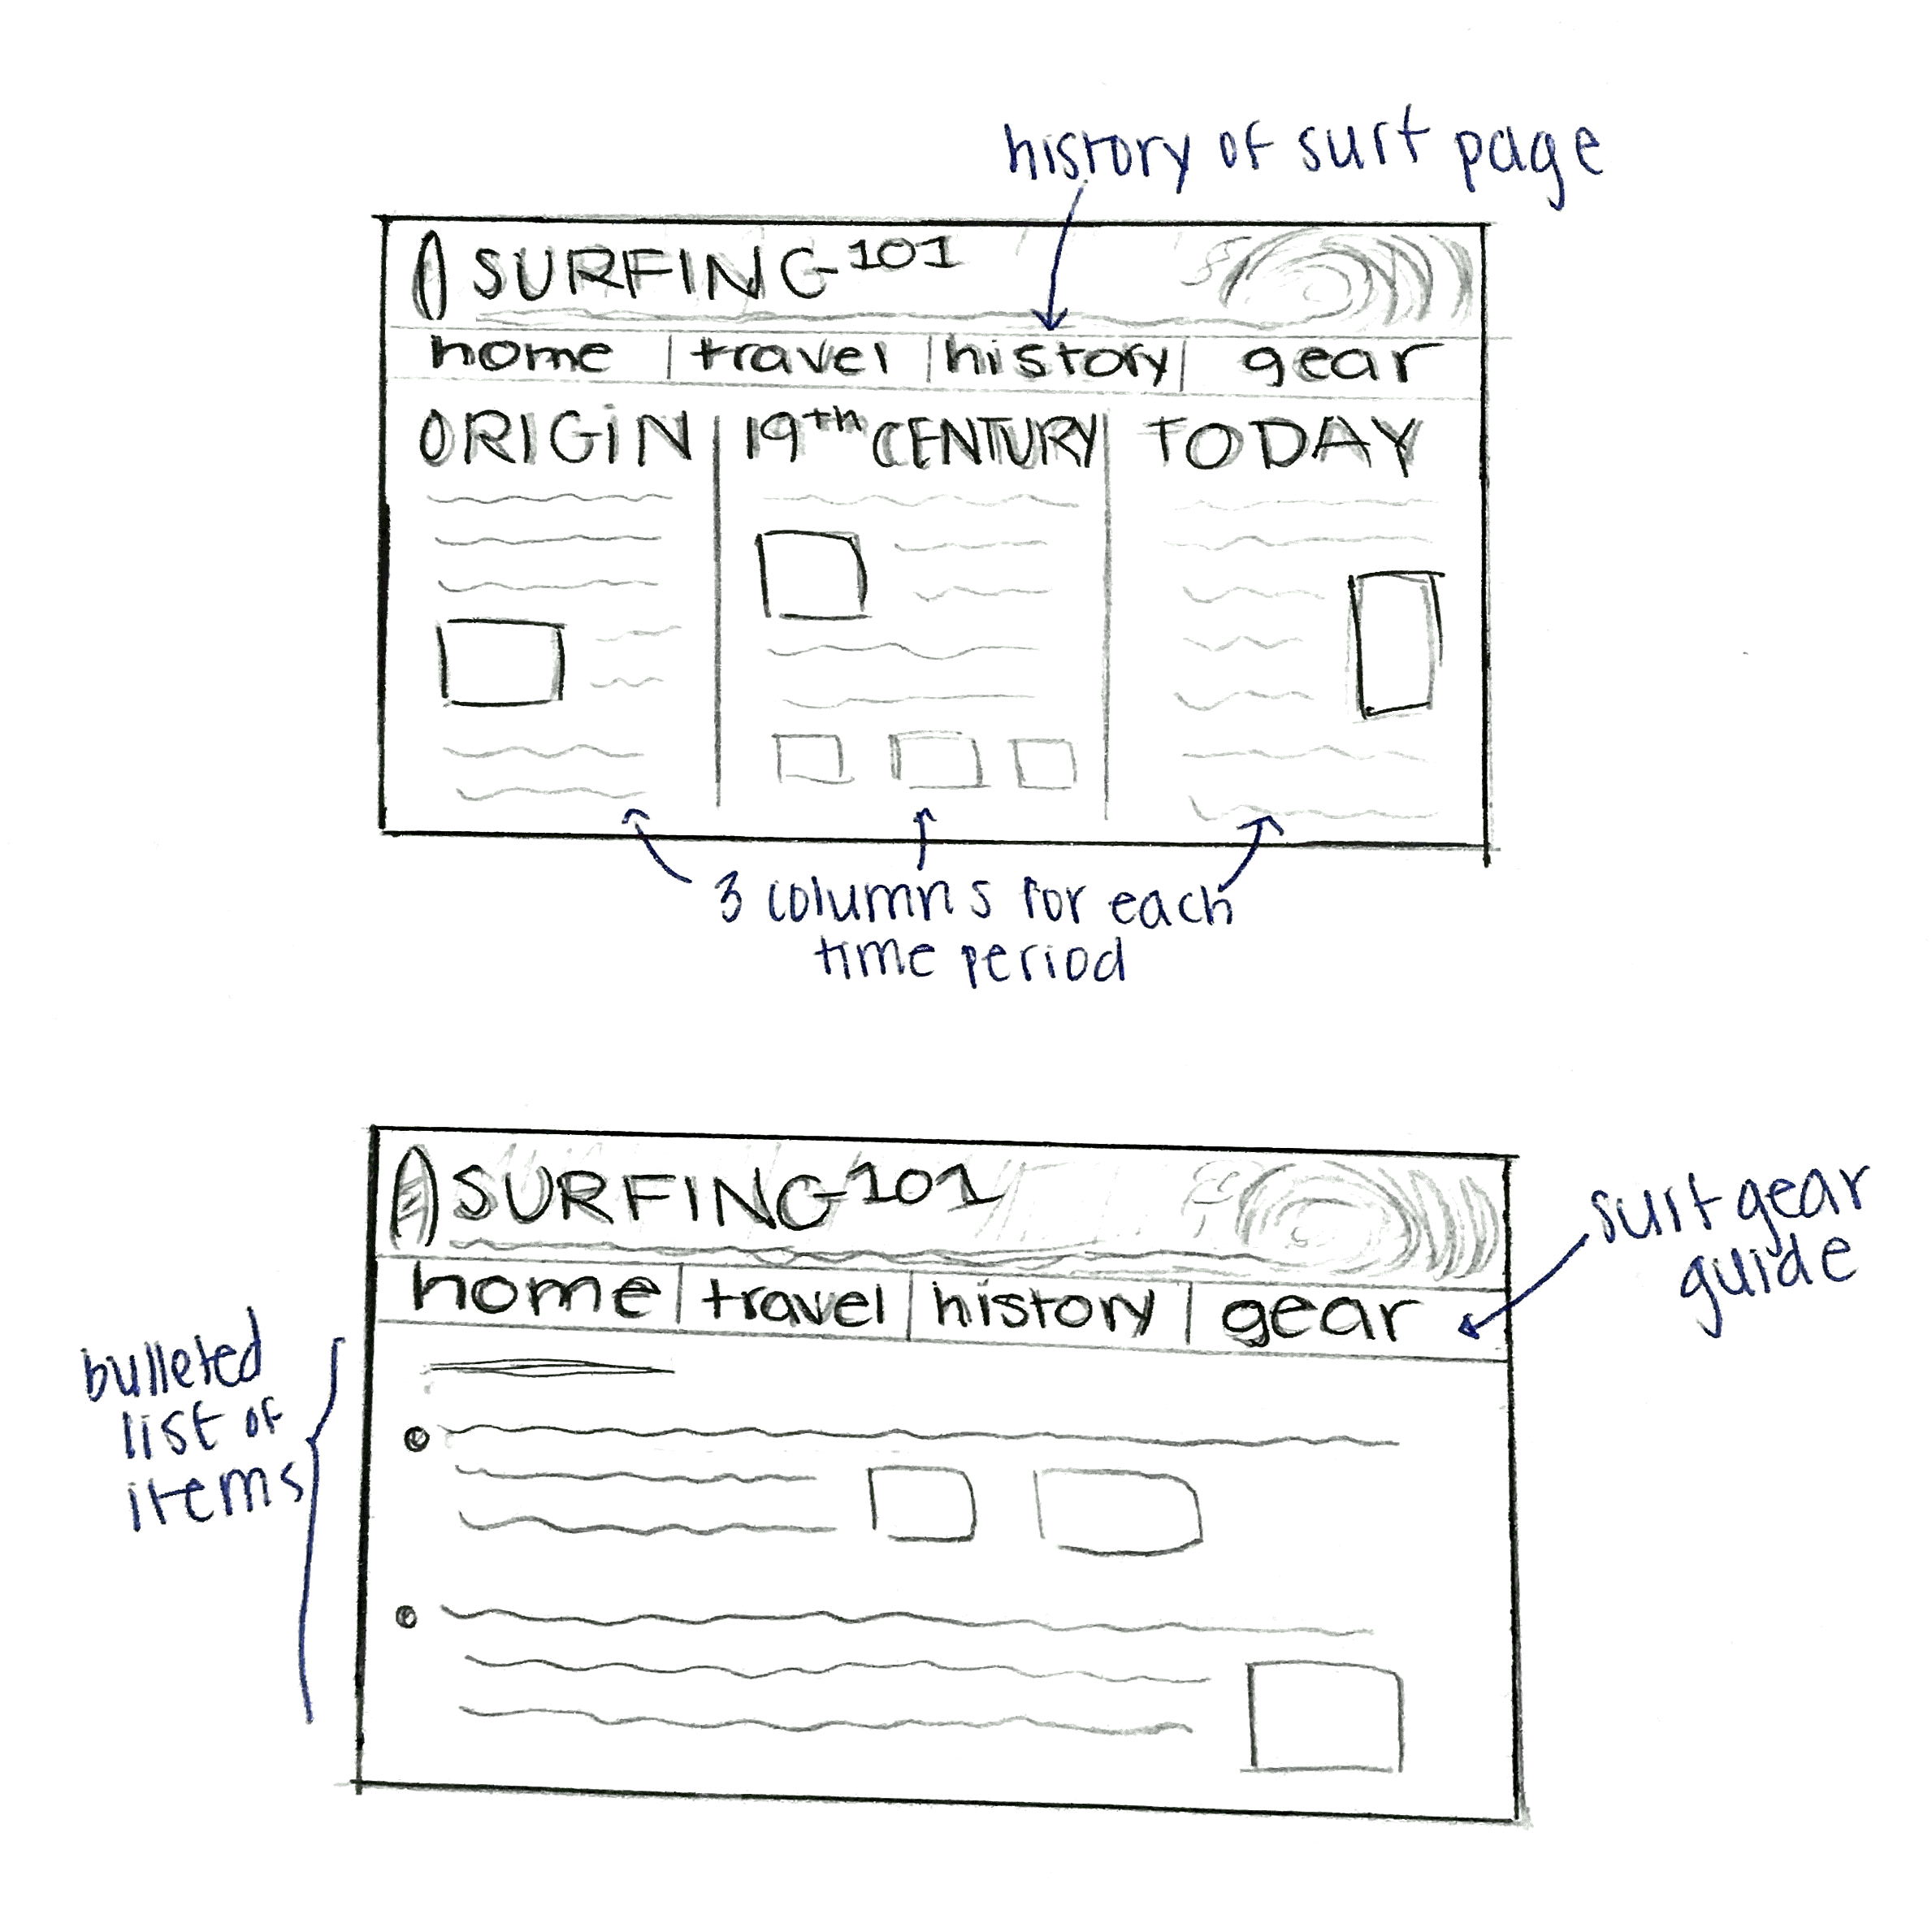 history of surf page
SURFING 101
home | travel | history | gear
ORIGIN | 19th CENTURY | TODAY
3 columns for each
time period
SURFING 101
home | travel | history | gear
surf gear
guide
bulleted
list of
items